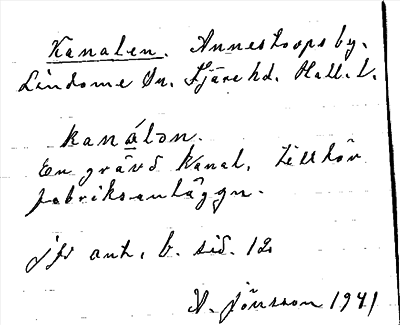 Kanalen. Annestorps by.
Lindome sn. Fjäre hd. Hall. l.
kanálən.
En grävd kanal, tillhör
fabriksanläggn.
jfr ant. b. sid. 12
A. Jönsson 1941